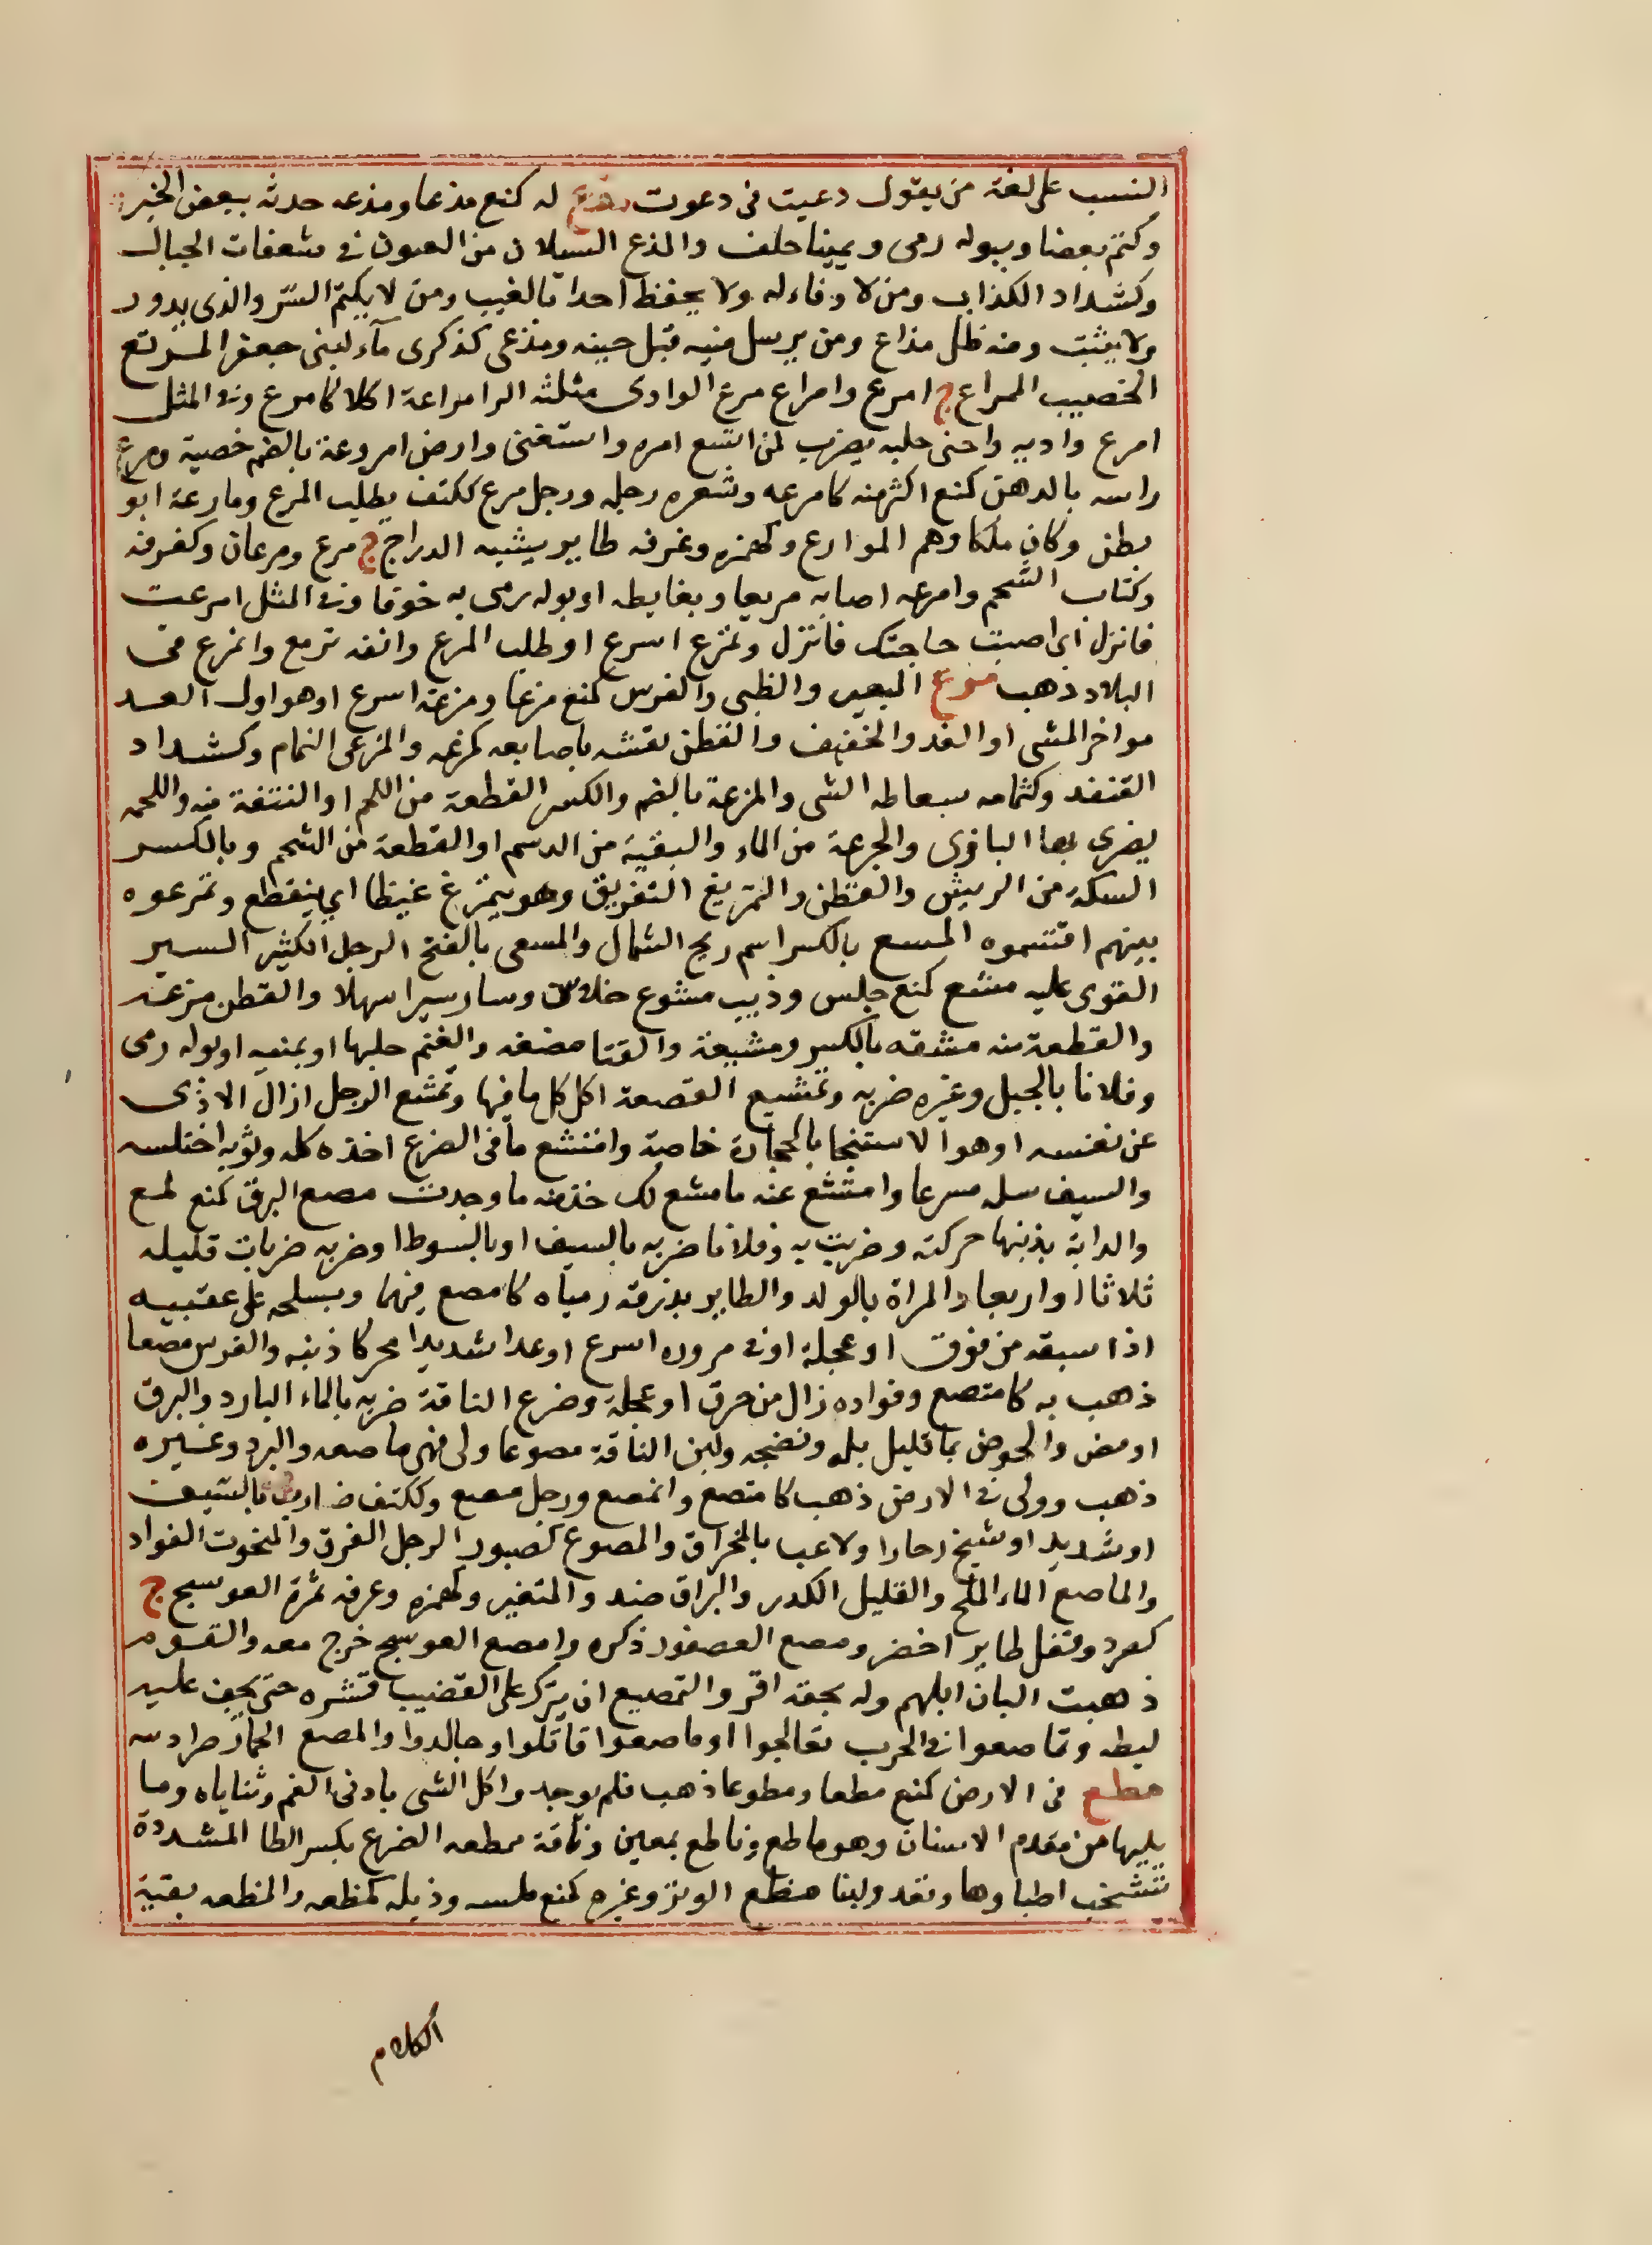 النسب على لغة من يقول دعيت فى دعوت مذع له كمنع مذعا ومذعه حدثه ببعض الخبر
وكتم بعضا وببوله رمى ويمينا حلف والمذع السيلان من العيون فى شعفات الجبال
وكشداد الكذاب ومن لا وفاء له ولا يحفظ احدا بالغيب ومن لا يكتم السّر والذى يدور
ولا يثبت ومنه ظل مذاع ومن يرسل منيه قبل حينه ومذعى كذكرى مآء لبنى جعفر المــرتع
الخصيب الممراع ج امرع وامراع مرع الوادى مثلثه الرا مراعة اكلا كامرع وفى المثل
امرع واديه واجنى حلبه يضرب لمن اتسع امره واستغنى وارض امروعة بالضم خصبة ومرع
راسه بالدهن كمنع اكثر منه كامرعه وشعره رجله ورجل مرع ككتف يطلب المرع ومارعة ابو
بطن وكان ملكا وهم الموارع وكهمزه وغرفه طاير يشبه الدراج ج مرع ومرعان وكغرفه
وكتاب الشحم وامرعه اصابه مريعا وبغايطه او بوله رمى به خوفا وفى المثل امرعت
فانزل اى اصبت حاجتك فانزل وتمرع اسرع او طلب المرع وانفه ترمع وانمرع فى
البلاد ذهب مزع البعير والظبى والفرس كمنع مزعا ومزعة اسرع او هو اول العــد
مواخر المشى او العدو الخفيف والقطن نفشه باصابعه كمزعه والمزعى النمام وكشداد
القنفد وكثمامه سقاطه الشى والمزعة بالضم والكسر القطعة من اللحم او النتفة منه واللحمه
يضرى بها البازى والجرعة من الماء والبقية من الدسم او القطعة من الشحم وبالكسر
السكه من الريش والقطن والتمزيع التفريق وهو يتمزع غيظا اي يتقطع وتمزعوه
بينهم اقتسموه المسع بالكسر اسم ريح الشمال والمسعى بالفتح الرجل الكثير السير
القوى عليه مشع كمنع جلس وذيب مشوع خلاس وسار سيرا سهلا والقطن مزعه
والقطعة منه مشعه بالكسر ومشيعة والقثا مضغه والغنم حلبها او بمنيه او بوله رمى
وفلانا بالحبل وغيره ضربه وتمشيع القصعة اكل كل ما فيها وتمشع الرجل ازال الاذى
عن نفسه او هو الاستنجا بالحجارة خاصة وامتشع ما فى الضرع اخذه كله وثوبه اختلسه
والسيف سله مسرعا وامتشع عنه ما مشع لك خذ منه ما وجدت مصع البرق كمنع لمع
والدابة بذنبها حركته وضربت به وفلانا ضربه بالسيف او بالسوط او ضربه ضربات قليله
ثلاثا او اربعا والمراة بالولد والطاير بذرقه رمياه كامصع فيهما وبسلحه على عقبيه
اذا سبقه من فرق او عجلة او فى مروره اسرع او عدا شديدا محركا ذنبه والفرس مصعا
ذهب به كامتصع وفواده زال من فرق او عجلة وضرع الناقة ضربه بالماء البارد والبرق
اومض والحوض بما قليل بله ونضحه ولبن الناقة مصوعا ولى فهى ماصعه والبرد وغيره
ذهب وولى فى الارض ذهب كامتصع وانمصع ورجل مصع وككتف ضارب بالسيف
او شديد او شيخ زحارا ولاعب بالمخراق والمصوع كصبور الرجل الفرق والمنخوت الفواد
والماصع الماء الملح والقليل الكدر والبراق ضد والمتغير وكهمزه وغرفه ثمرة العوسج ج
كصرد وقفل طاير اخضر ومصع العصفور ذكره وامصع العوسج خرج مصعه والقوم
ذهبت البان ابلهم وله بحقه اقر والتمصيع ان يترك على القضيب قشره حتى يجف عليه
ليطه وتماصعوا فى الحرب تعالجوا او ماصعوا قاتلوا وجالدوا والمصع الحمار صرادسه
مطع فى الارض كمنع مطعا ومطوعا ذهب فلم يوجد واكل الشى بادنى الفم وثناياه وما
يليها من مقدم الاسنان وهو ماطع وناطع بمعنى وناقة ممطعه الضرع بكسر الطا المشددة
تتشخب اطباوها وتغذ ولبنا مظع الوتر وغيره كمنع ملسه وذبله كمظعه والمظعه بقية
الكلام